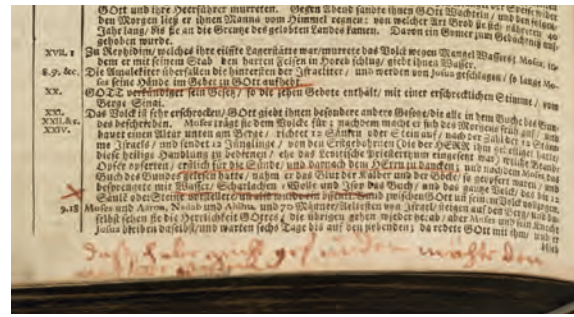 GOtt und ihre Heerführer murreten. Gegen Abend sandte ihnen GOtt Wachteln / und den folgen-
den Morgen ließ er ihnen Manna vom Himmel regnen: von welcher Art Brod sie sich nähreten 40
Jahr lang / bis sie an die Grentze des gelobten Landes kamen. Davon ein Gomer zum Gedächtniß auf-
gehoben wurde.
XVII. 1 Zu Rephidim / welches ihre eilfte Lagerstätte war / murrete das Volck wegen Mangel Wassers; Moses, in-
dem er mit seinem Stab den harten Felsen in Horeb schlug / giebt ihnen Wasser.
8.9. &c. Die Amalekiter überfallen die hintersten der Israeliter / und werden von Josua geschlagen / so lange Mo-
ses seine Hände im Gebet zu GOtt aufhebt.
XX. GOTT verkündiget sein Gesetz / so die zehen Gebote enthält / mit einer erschrecklichen Stimme / vom
Berge Sinai.
XXI. Das Volck ist sehr erschrocken / GOtt giebt ihnen besondere andere Gesetze / die alle in dem Buche des Bun-
XXII. &c. des beschrieben. Moses trägt sie dem Volcke für; nachdem macht er sich des Morgens früh auf / und
XXIV. bauet einen Altar unten am Berge / richtet 12 Säulen oder Stein auf / nach der Zahl der 12 Stäm-
me Israels / und sendet 12 Jünglinge / von den Erstgebohrnen (die der HERR ihm geheiliget hatte /
diese heilige Handlung zu bedienen / ehe das Levitische Priesterthum eingesetzt war) welche Brand-
Opfer opferten / erstlich für die Sünde / und darnach dem HErrn zu dancken; und nachdem Moses das
Buch des Bundes gelesen hatte / nahm er das Blut der Kälber und der Böcke / so geopfert waren / und
besprengete mit Wasser / Scharlachen / Wolle und Isop das Buch / und das gantze Volck / das die 12
Säule oder Steine vorstellete / und zwischen GOtt und seinem Volck vollzogen.
9.18 Moses und Aaron, Nadab und Abihu, und 70 Männer / Aeltesten von Israel / steigen auf den Berg / und da-
selbst sehen sie die Herrlichkeit GOttes; die übrigen gehen wieder herab / aber Moses und sein Knecht
Josua bleiben daselbst / und warten sechs Tage bis auf den siebenden; da redete GOtt mit ihm / und er
blieb